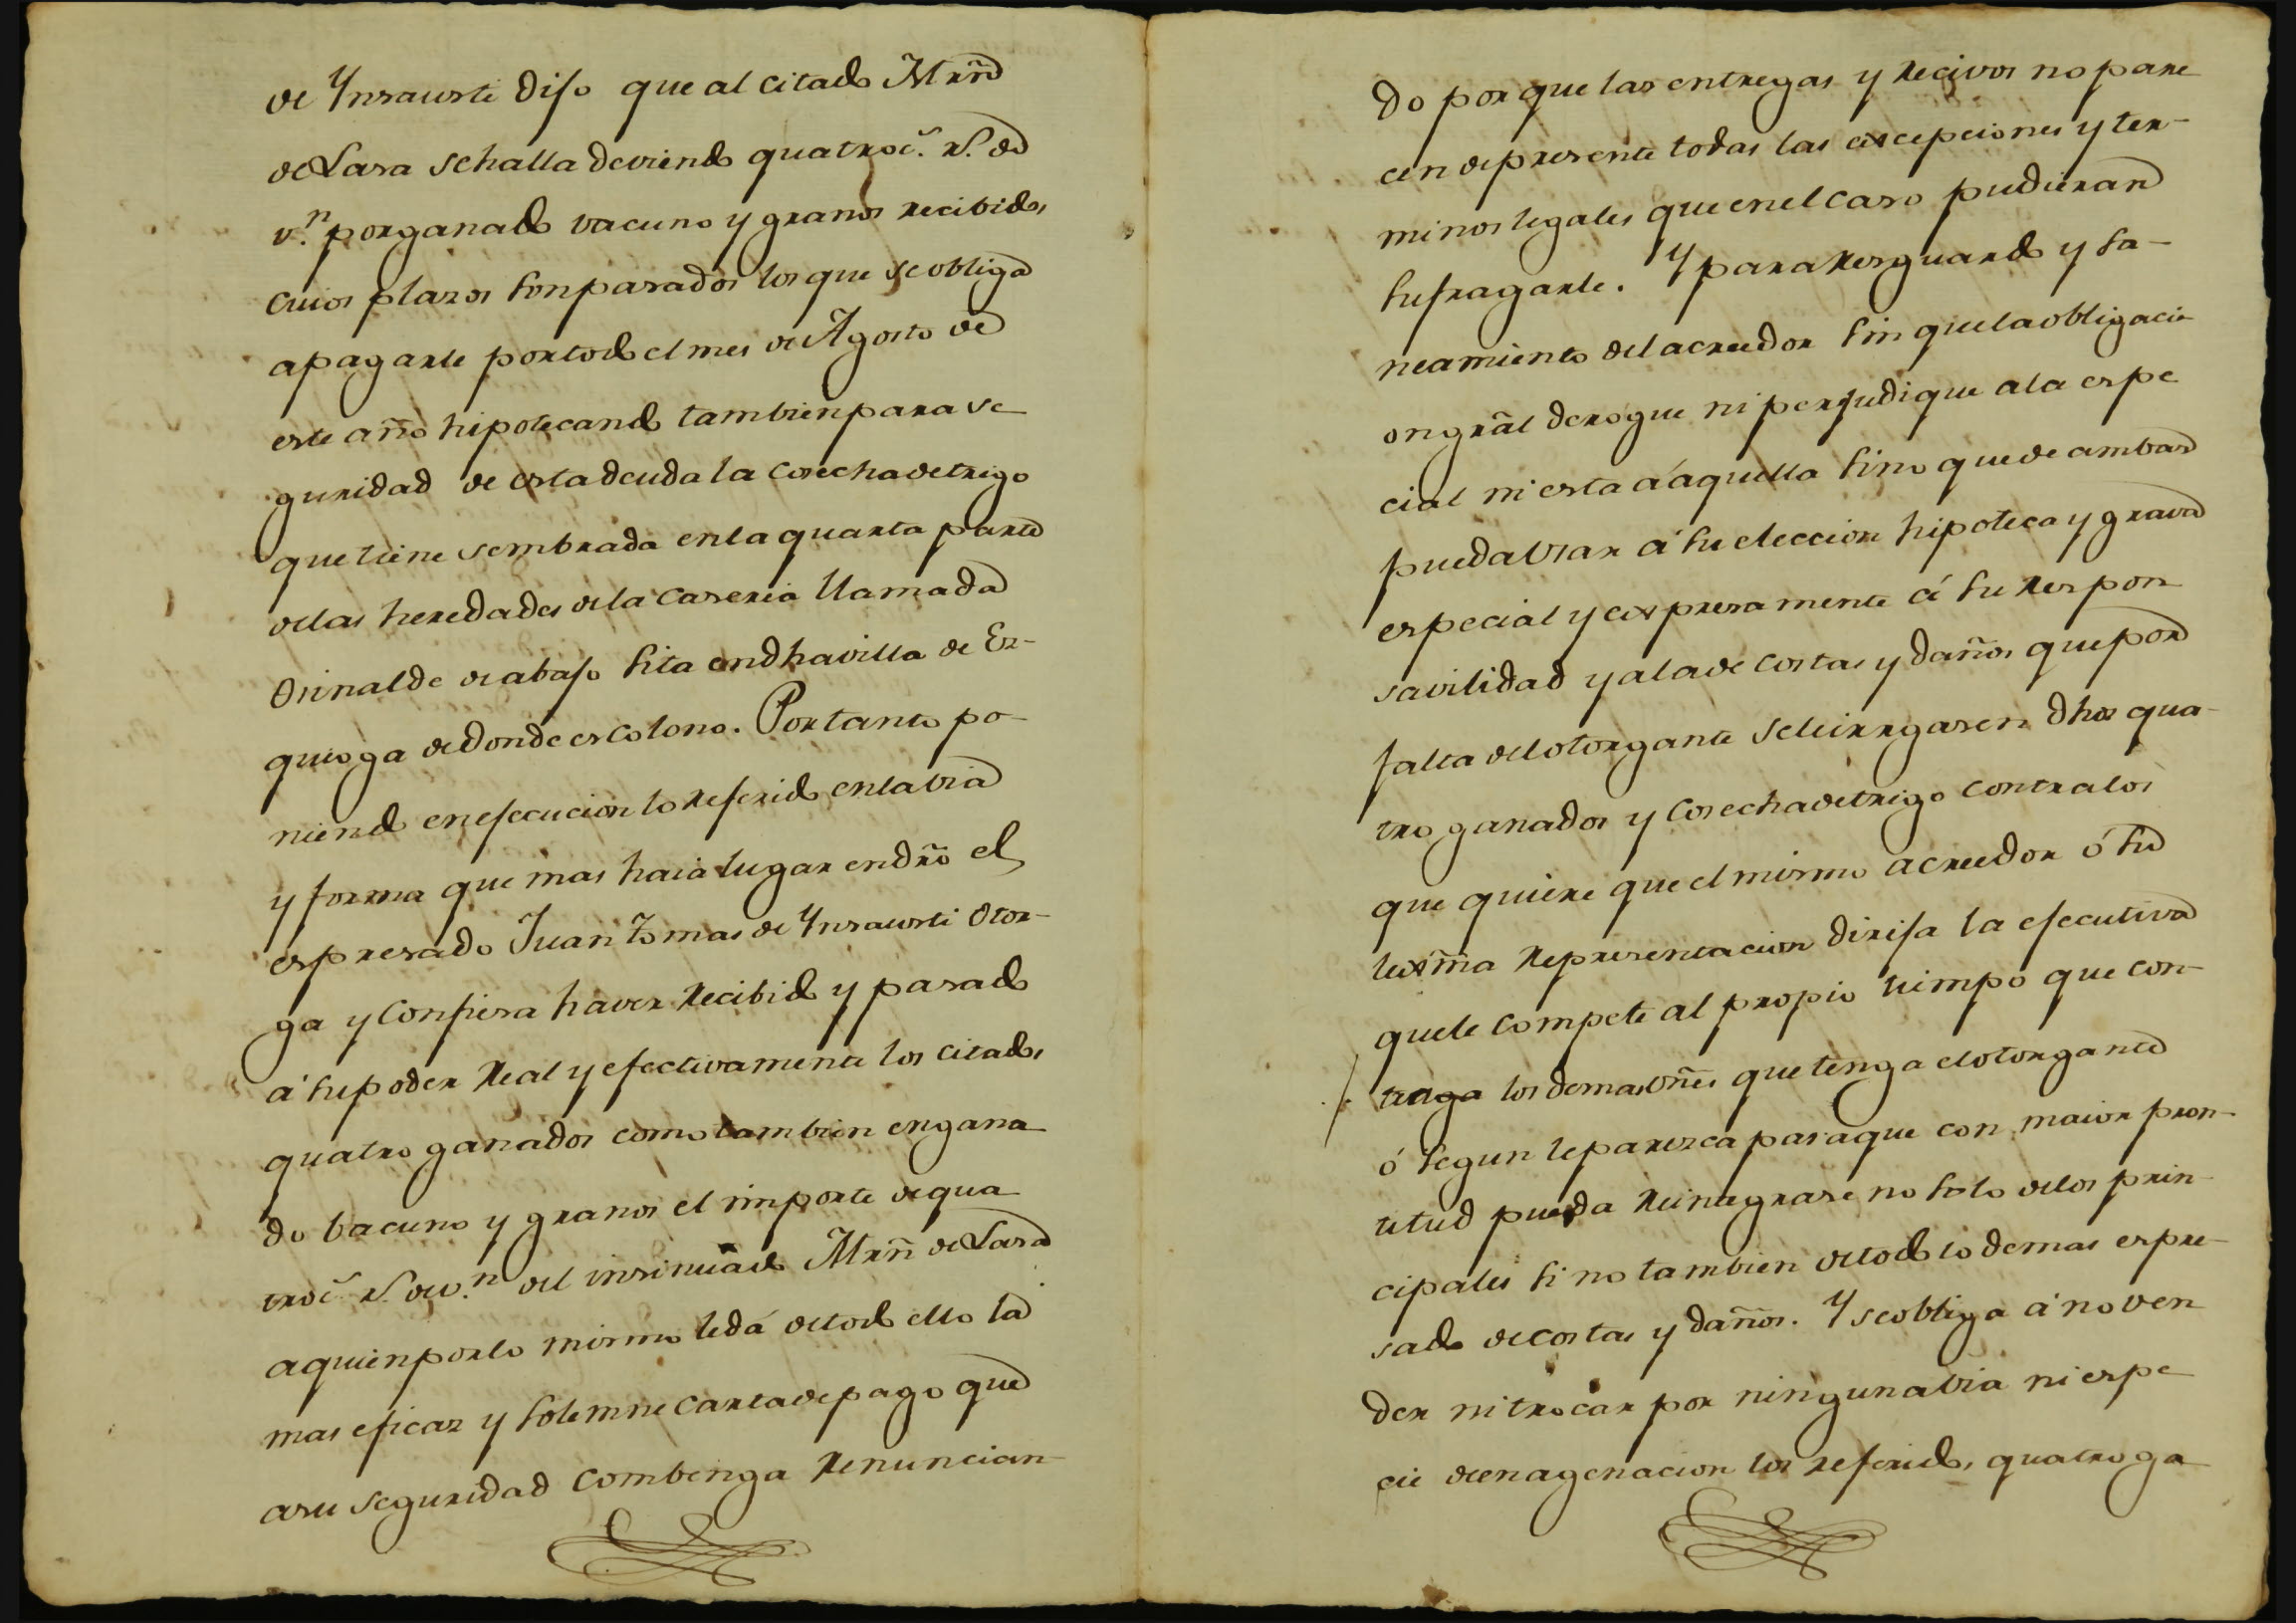 de Ynsausti dijo que al citado Mrñ
de Lasa se halla deviendo quatroc.s r.s de
v.n por ganado vacuno y granos recibidos
cuios plazos son pasados los que se obliga
a pagarle por todo el mes de Agosto de
este año hipotecando tambien para se
guridad de esta deuda la cosecha de trigo
que tiene sembrada en la quarta parte
de las heredades de la caseria llamada
Orinalde de abajo sita en dha villa de Ez-
quioga de donde es colono. Por tanto po-
niendo en ejecucion lo referido en la via
y forma que mas haia lugar en dro el
espresado Juan Tomas de Ynsausti Otor-
ga y confiesa haver recibido y pasado
á su poder real y efectivamente los citados
quatro ganados como tambien en gana
do bacuno y granos el importe de qua
troc.s r.s de v.n del insinuado Mrñ de Lasa
a quien por lo mismo le dá de todo ello la
mas eficaz y solemne carta de pago que
a su seguridad combenga renuncian-
do por que las entregas y recivos no pare
cen de presente todas las excepciones y ter-
minos legales que en el caso pudieran
sufragarle. Y para resguardo y sa-
neamiento del acreedor sin que la obligaci
on grãl derogue ni perjudique a la espe
cial ni esta á aquella sino que de ambas
pueda usar á su eleccion hipoteca y grava
especial y expresamente á su respon
savilidad y a la de costas y daños que por
falta del otorgante se le irrogasen dhos qua-
tro ganados y cosecha de trigo contra los
que quiere que el mismo acreedor ó su
lexm̃a representacion dirija la ejecutiva
que le compete al propio tiempo que con-
traga los demas vñes que tenga el otorgante
ó segun le paresca para que con maior pron-
titud pueda reintegrarse no solo de los prin
cipales sino tambien de todo lo demas espre-
sado de costas y daños. Y se obliga á no ven
der ni trocar por ninguna via ni espe
cie de enagenacion los referidos quatro ga